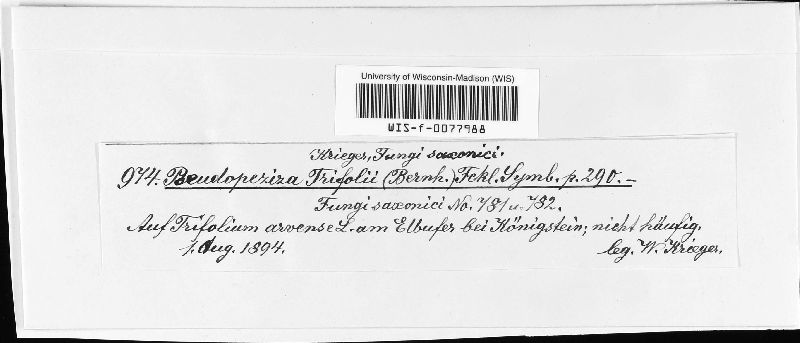 University of Wisconsin-Madison (WIS)
WIS-f-0077988
Krieger, Fungi saxonici.
974. Pseudopeziza Trifolii (Bernh.) Fckl. Symb. p. 290. –
Fungi saxonici No. 781 u. 782.
Auf Trifolium arvense L. am Elbufer bei Königstein; nicht häufig.
1. Aug. 1894.
leg. W. Krieger.